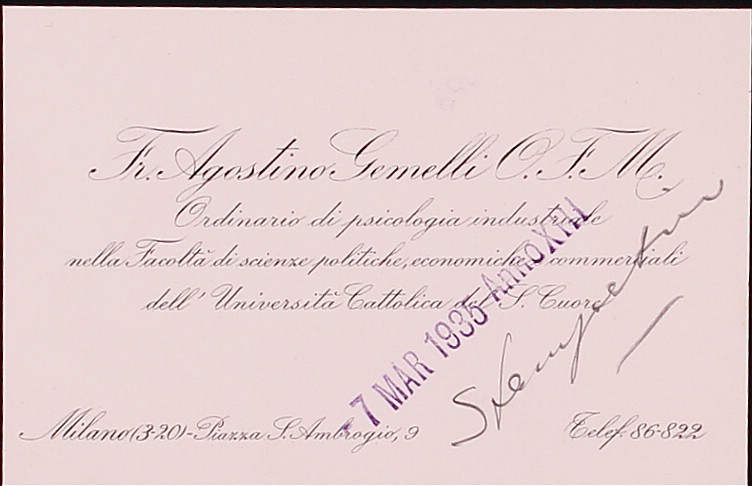 Fr. Agostino Gemelli O. F. M.
Ordinario di psicologia industriale
nella Facoltà di scienze politiche, economiche e commerciali
dell' Università Cattolica del S. Cuore
- 7 MAR 1935 - Anno XIII
Milano (3-20) - Piazza S. Ambrogio, 9
Telef. 86-822